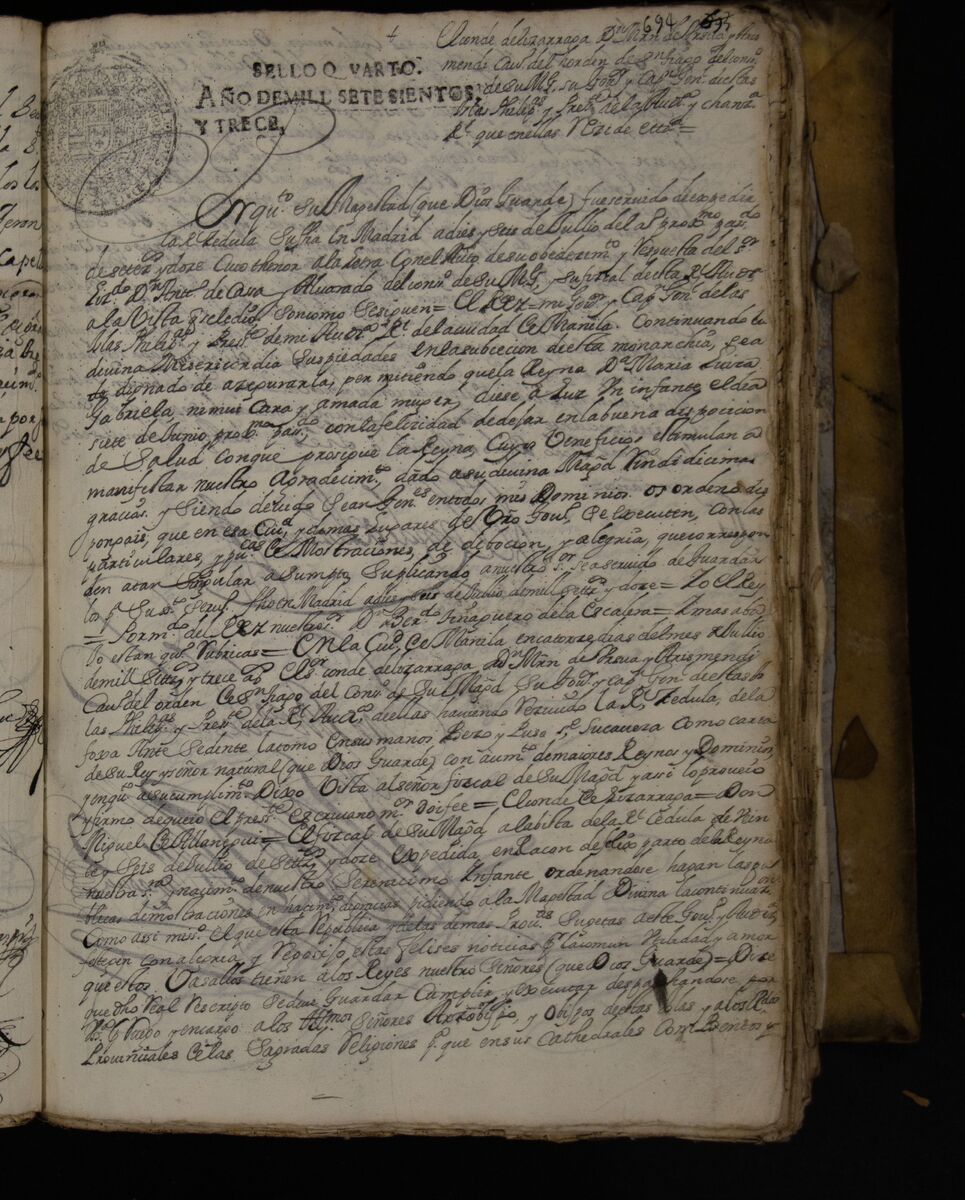 694
SELLO QVARTO.
AÑO DE MILL SETESIENTOS,
Y TRECE,
El conde de lizarraga Dn Mrn de Vrsua y Aris
mendi Cavo del horden de Sn tiago del conso
de su Mg. su Govr y Capn Genl destas
Islas Philips y Presite de la Audia y chanza
Rl que en ellas Reside etta =
Por qto Su Magestad (que Dios Guarde) fue servido de expedir
la Rl Zedula Su fha En Madrid a dies y seis de Jullio del año proxmo pasdo
de setezs y doze Cuio thenor a la letra Con el Auto de su obedezimto y Respuesta del Sr
Dn Antto de Casa y Alvarado del conso de Su Mg, su fiscal de esta Rl Audia
a la Vista q se le dio Son como Se siguen = El Rey = mi Govr y Capn Genl de las
Islas Phelipas y Presite de mi Audia Rl de la ciudad de Manila. Continuando la
divina Misericordia Sus piedades En la subcecion de esta monarchia, se a
dignado de asegurarla, permitiendo que la Reyna Da Maria Luisa
Gabriela, mi mui Cara y amada muger, diese a luz Un infante el dia
siete de Junio proxmo pasdo, con la felizidad de dejar en la buena dispocicion
de Salud con que prosigue la Reyna, Cuyos Veneficios estimulan a
manifestar nuestro Agradecimto, dando a su divina Magd Rendidicimas
gracias. y Siendo devido Sean Genes en todos mis Dominios. os ordeno dis
pongais, que en esa Ciud, y demas lugares del Vro Govo, Se executen, con las
particulares, y pucas Demostraciones, de debocion, y alegria, que corres pon
den a tan Singular asumpto Suplicando a nuestro Sr. Sea servido de Guardar
lo pa Su Sto Servo. fho en Madrid a dies y seis de Jullio de mill Setezs y doze = Yo el Rey
= Por mdo del Rey nuestro Sr. Dn Berndo Tinaguero de la Escalera = Y mas aba
xo estan qtro Rubricas = En la Ciud de Manila en catorze dias del mes de Jullio
de mill Setezs y trece as El Sr Conde de Lizarraga Dn Mrn de Vrsua y Arismendi
Cavo del orden de Sn tiago del Conso de Su Magd Su Govr y Capn Genl de estas Is
las Phelipas y Presite de la Rl Auda de ellas haviendo Recivido la Rl Zedula, de la
foxa Ante Sedente la tomo En sus manos Bezo y Puso Se Su caveza Como carta
de Su Rey y Señor natural (que Dios Guarde) con aumto de maiores Reynos y Dominios,
y en qto a su cumplimto Dixo Vista al señor fiscal de Su Magd y assi lo proveio
y firmo de que io el presite escrivano mor doi fee = El conde de Lizarraga = Don
Miguel de Allanigui = El fizcal de Su Magd a la bista de la Rl Cedula de Dies
y Seis de Jullio de Setezs y doze Expedida en Racon del felix parto de la Reyna
nuestra Sra y nacimto de nuestro Serenicimo Infante ordenandose hagan las pu
blicas demostraciones en hacimto de gracias pidiendo a la Magestad Divina la continuacion
Como assi mismo El que esta Republica y las demas Provas Sugetas de este Govo y Audia
festejen con alegria, y Regosijo, estas felises noticias pr la comun Lealdad y amor
que estos Vasallos tienen a los Reyes nuestro Señores (que Dios Guarde) = Dize
que dho Real Rescripto Se deve Guardar Cumplir y executar despachandose por
Rl Ruego y encargo a los Illmos Señores Arzobispo, y Obispos de estas Islas y a los Rdos
Provinciales de las Sagradas Religiones pa que en sus Cathedrales Combentos y